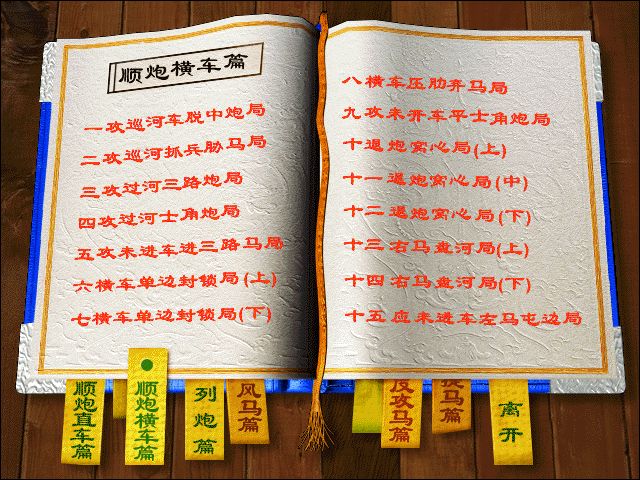 顺炮横车篇
一攻巡河车脱中炮局
二攻巡河抓兵胁马局
三攻过河三路炮局
四攻过河士角炮局
五攻未进车进三路马局
六横车单边封锁局(上)
七横车单边封锁局(下)
八横车压肋弃马局
九攻未开车平士角炮局
十退炮窝心局(上)
十一退炮窝心局(中)
十二退炮窝心局(下)
十三右马盘河局(上)
十四右马盘河局(下)
十五应未进车左马屯边局
顺炮直车篇
顺炮横车篇
列炮篇
风马篇
反攻马篇
马篇
离开